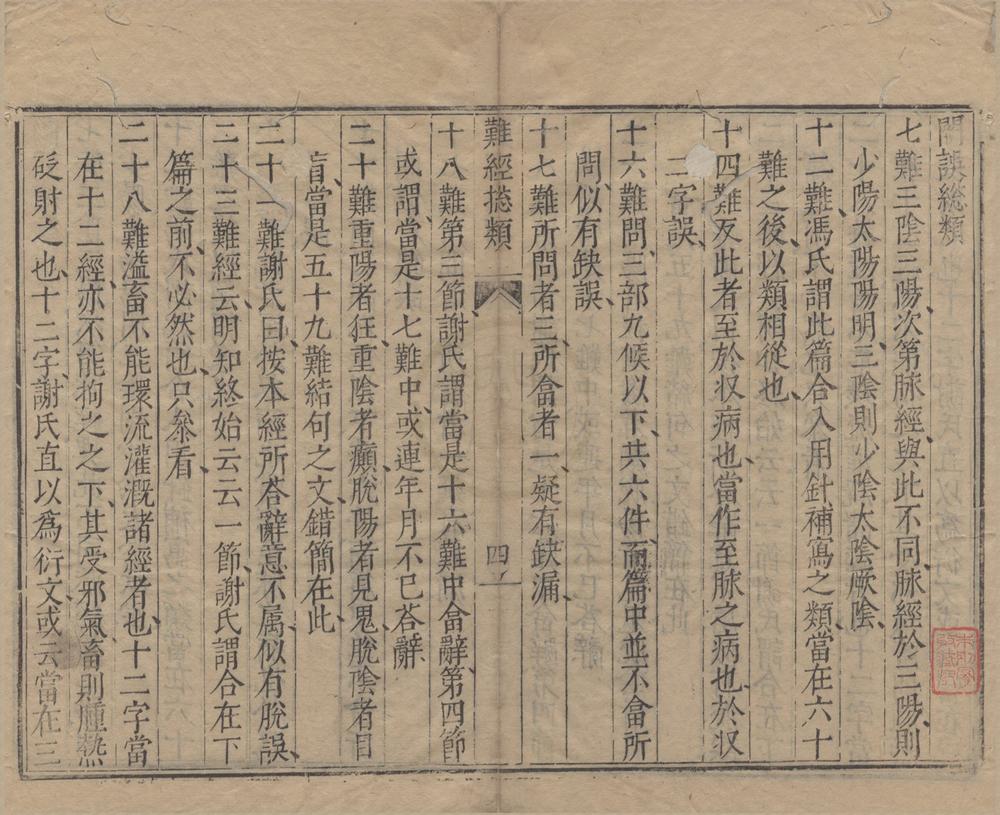 闕誤総類
七難三陰三陽、次第脉經與此不同、脉經於三陽、則
少陽太陽陽明、三陰則少陰太陰厥陰、
十二難、馮氏謂此篇合入用針補寫之類、當在六十
難之後、以類相從也、
十四難反此者至於収病也、當作至脉之病也、於収
二字誤、
十六難問、三部九候以下、共六件、而篇中並不畣所
問、似有缺誤、
十七難所問者三、所畣者一、疑有缺漏、
難經捴類
四
十八難第三節、謝氏謂當是十六難中畣辭、第四節
或謂、當是十七難中、或連年月不已荅辭
二十難重陽者狂、重陰者癲、脫陽者見鬼、脫陰者目
盲、當是五十九難結句之文、錯簡在此、
二十一難謝氏曰、按本經所荅辭意不属、似有脫誤、
二十三難經云、明知終始云云一節、謝氏謂合在下
篇之前、不必然也、只叅看、
二十八難溢畜不能環流灌溉諸經者也、十二字當
在十二經、亦不能拘之之下、其受邪氣、畜則腫熱
砭射之也、十二字、謝氏直以爲衍文、或云當在三